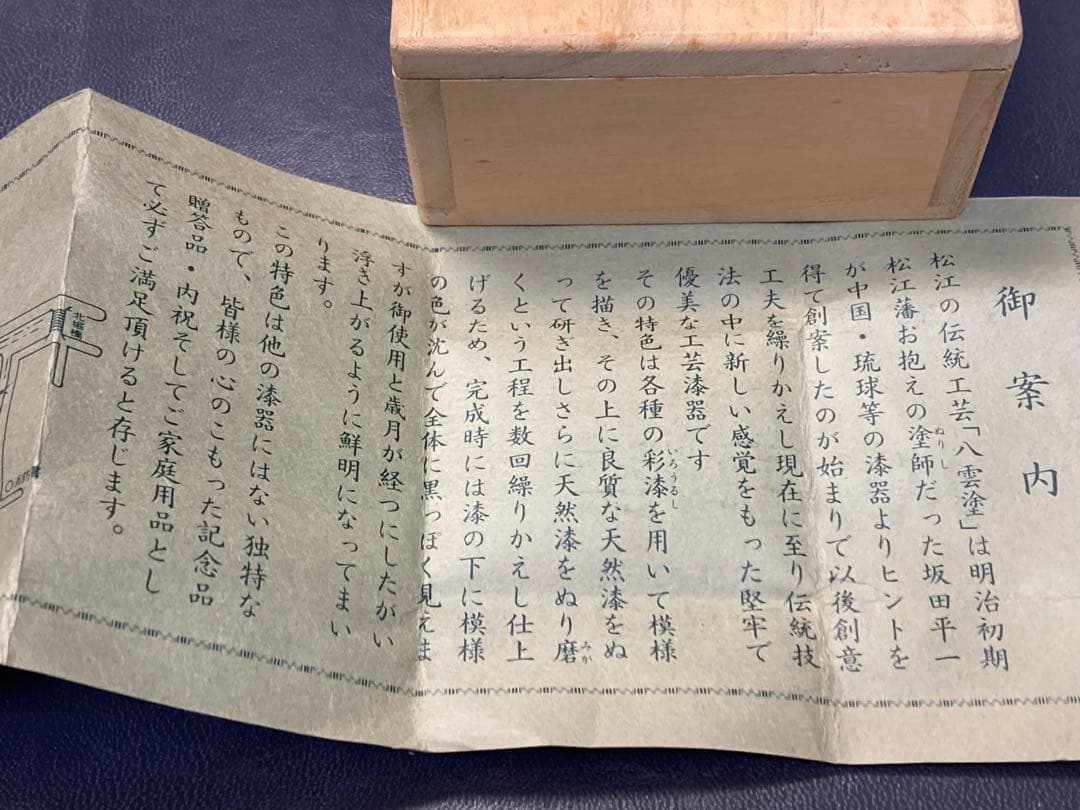 御案内
松江の伝統工芸「八雲塗」は明治初期
松江藩お抱えの塗師だった坂田平一
ぬりし
が中国・琉球等の漆器よりヒントを
得て創案したのが始まりで以後創意
工夫を繰りかえし現在に至り伝統技
法の中に新しい感覚をもった堅牢で
優美な工芸漆器です
その特色は各種の彩漆を用いて模様
いろうるし
を描き、その上に良質な天然漆をぬ
って研ぎ出しさらに天然漆をぬり磨
みが
くという工程を数回繰りかえし仕上
げるため、完成時には漆の下に模様
の色が沈んで全体に黒っぽく見えま
すが御使用と歳月が経つにしたがい
浮き上がるように鮮明になってまい
ります。
この特色は他の漆器にはない独特な
もので、皆様の心のこもった記念品
贈答品・内祝そしてご家庭用品とし
て必ずご満足頂けると存じます。
北堀橋